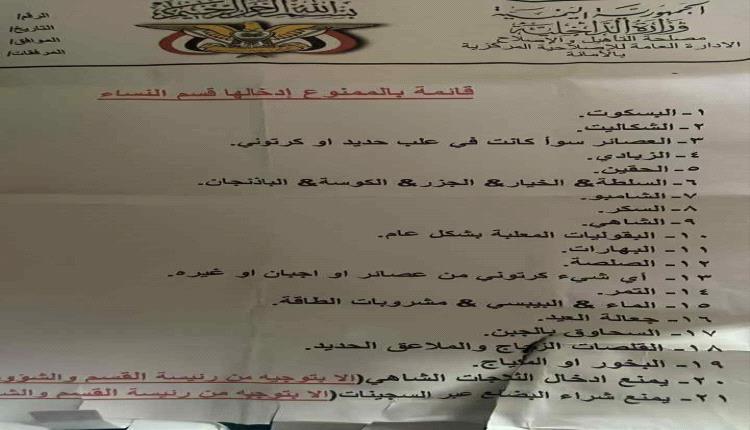 الجمهورية اليمنية
وزارة الداخلية
مصلحة التأهيل والإصلاح
الادارة العامة للإصلاحية المركزية
بالأمانة
الرقم/
التاريخ/
الموافق/
المرفقات/
قائمة بالممنوع إدخالها قسم النساء
١- البسكوت.
٢- الشكاليت.
٣- العصائر سوأ كانت في علب حديد او كرتوني.
٤- الزبادي.
٥- الحقين.
٦- السلطة& الخيار& الجزر& الكوسة& الباذنجان.
٧- الشامبو.
٨- السكر.
٩- الشاهي.
١٠- البقوليات المعلبة بشكل عام.
١١- البهارات.
١٢- الصلصة.
١٣- أي شيء كرتوني من عصائر او اجبان او غيره.
١٤- التمر.
١٥- الماء & البيبسي & مشروبات الطاقة.
١٦- جعالة العيد.
١٧- السحاوق بالجبن.
١٨- القلصات الزجاج والملاعق الحديد.
١٩- البخور او
٢٠- يمنع ادخال الشاهي(الا بتوجيه من رئيسة القسم
٢١- يمنع شراء البضائع عبر السجينات(الا بتوجيه من رئيسة القسم